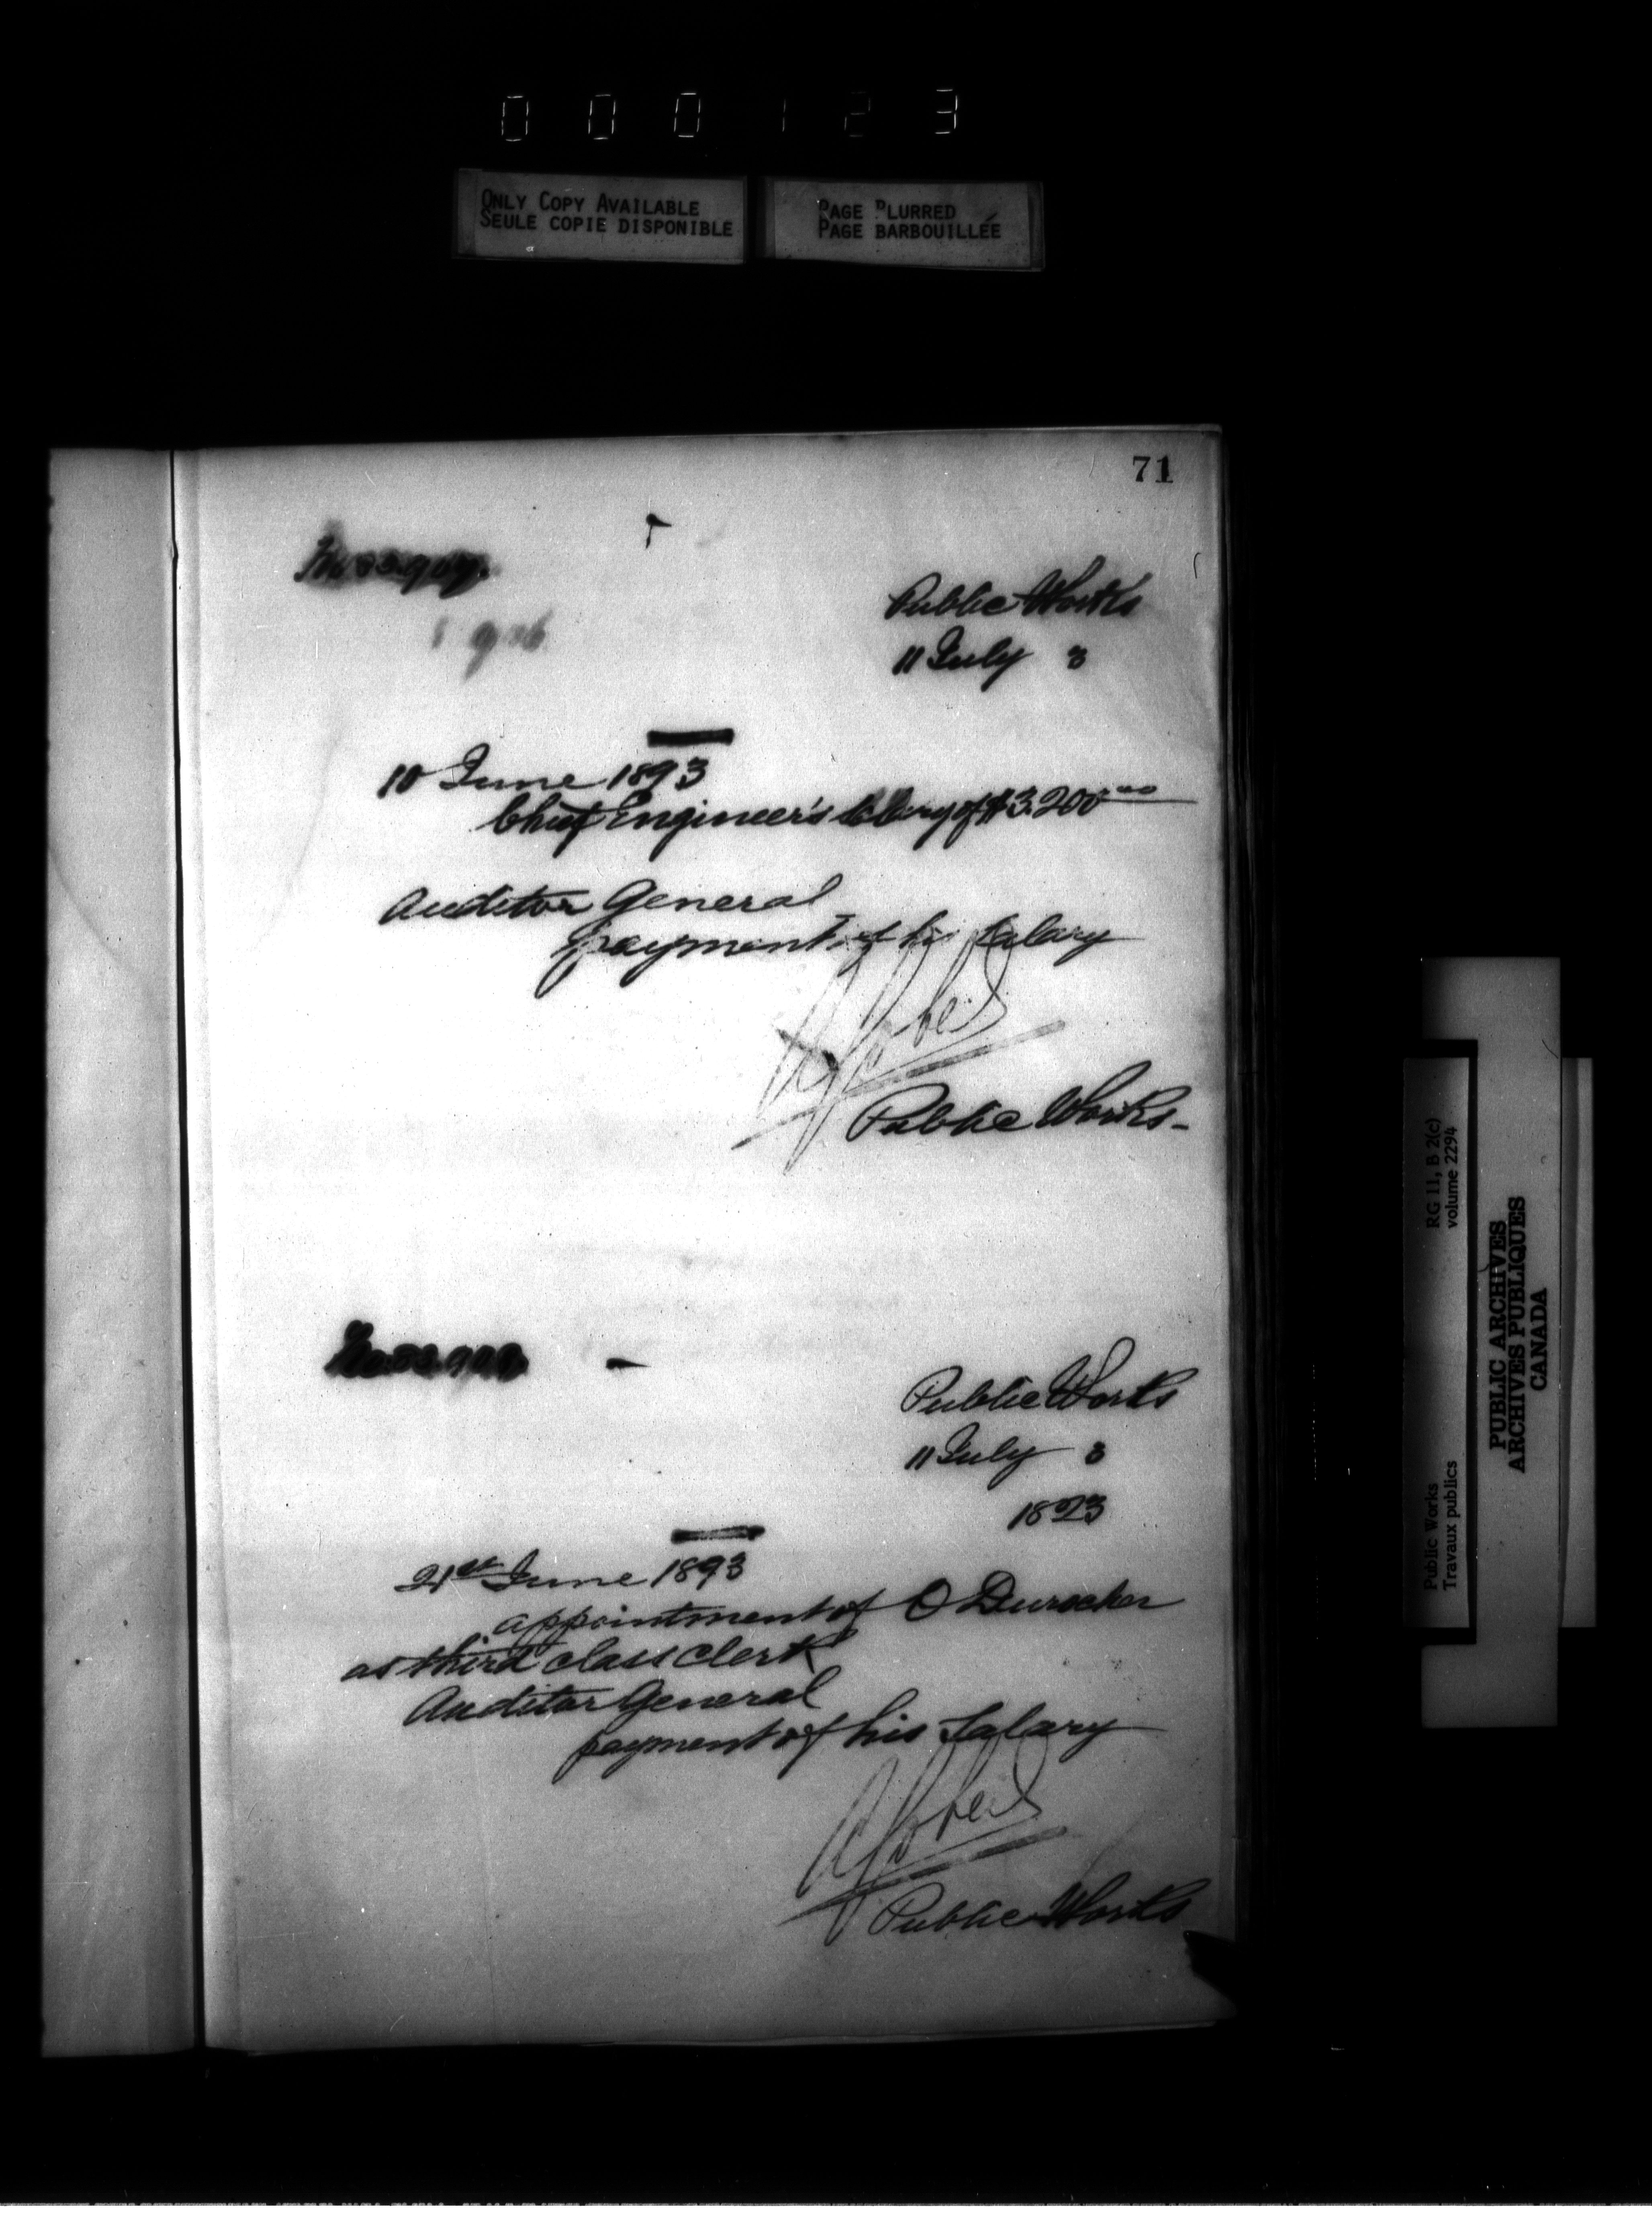 000123
ONLY COPY AVAILABLE
SEULE COPIE DISPONIBLE
PAGE BLURRED
PAGE BARBOUILLÉE
71
Public Works
11 July 3
10 June 1893
Chief Engineer's Salary of $3.200 00
Auditor General
payment of his Salary
Public Works-
Public Works
11 July 3
1893
21st June 1893
appointment of O Durocher
as third class clerk
Auditor General
payment of his Salary
Public Works
Public Works
Travaux publics
RG 11, B 2(c)
volume 2294
PUBLIC ARCHIVES
ARCHIVES PUBLIQUES
CANADA